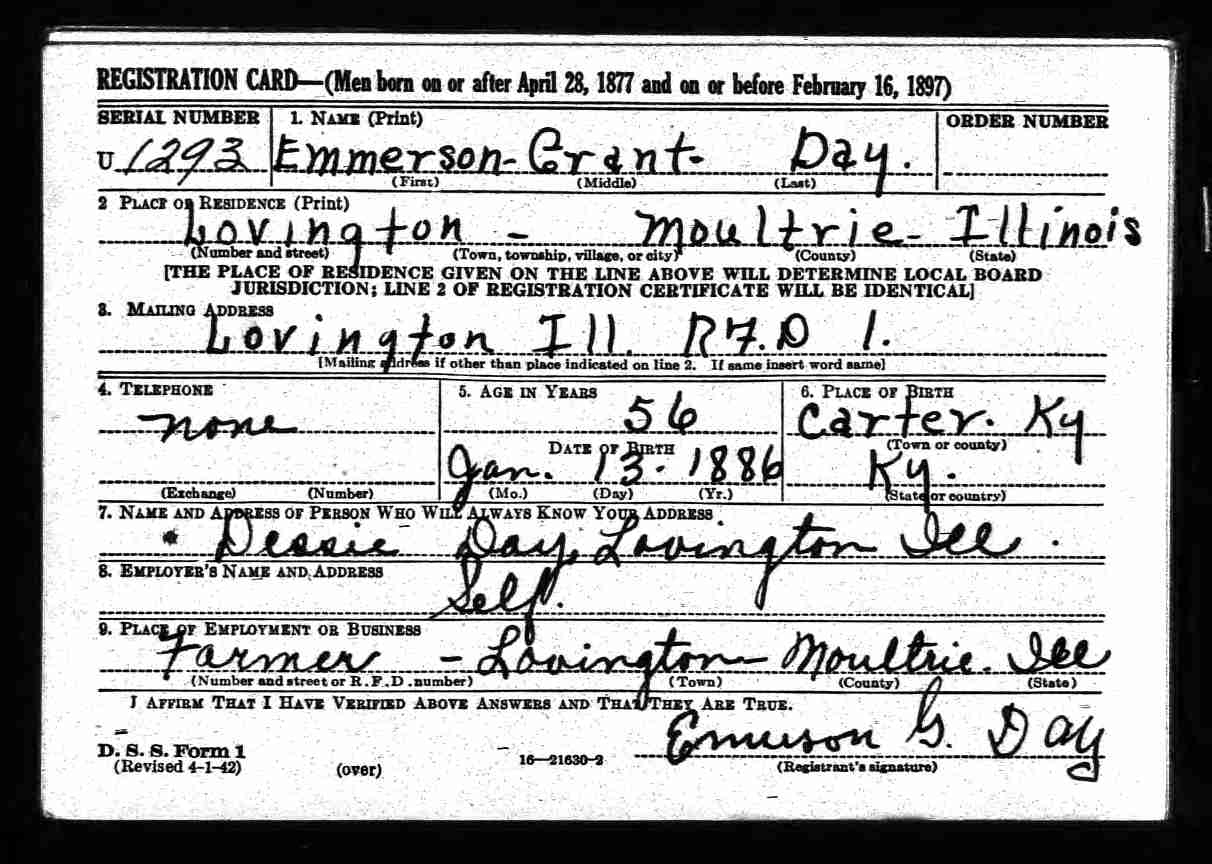 REGISTRATION CARD—(Men born on or after April 28, 1877 and on or before February 16, 1897)
SERIAL NUMBER 1. NAME (Print) ORDER NUMBER
U 1293 Emmerson-Grant- Day.
(First) (Middle) (Last)
2 PLACE OF RESIDENCE (Print)
Lovington - Moultrie- Illinois
(Number and street) (Town, township, village, or city) (County) (State)
[THE PLACE OF RESIDENCE GIVEN ON THE LINE ABOVE WILL DETERMINE LOCAL BOARD
JURISDICTION; LINE 2 OF REGISTRATION CERTIFICATE WILL BE IDENTICAL]
3. MAILING ADDRESS
Lovington Ill. R.F.D 1.
[Mailing address if other than place indicated on line 2. If same insert word same]
4. TELEPHONE 5. AGE IN YEARS 6. PLACE OF BIRTH
none 56 Carter. Ky
DATE OF BIRTH (Town or county)
Jan. 13. 1886 Ky.
(Exchange) (Number) (Mo.) (Day) (Yr.) (State or country)
7. NAME AND ADDRESS OF PERSON WHO WILL ALWAYS KNOW YOUR ADDRESS
Dessie Day, Lovington Ill.
8. EMPLOYER'S NAME AND ADDRESS
Self.
9. PLACE OF EMPLOYMENT OR BUSINESS
Farmer - Lovington- Moultrie. Ill
(Number and street or R. F. D. number) (Town) (County) (State)
I AFFIRM THAT I HAVE VERIFIED ABOVE ANSWERS AND THAT THEY ARE TRUE.
Emerson G. Day
D. S. S. Form 1
(Revised 4-1-42) (over) 16—21630-2 (Registrant's signature)